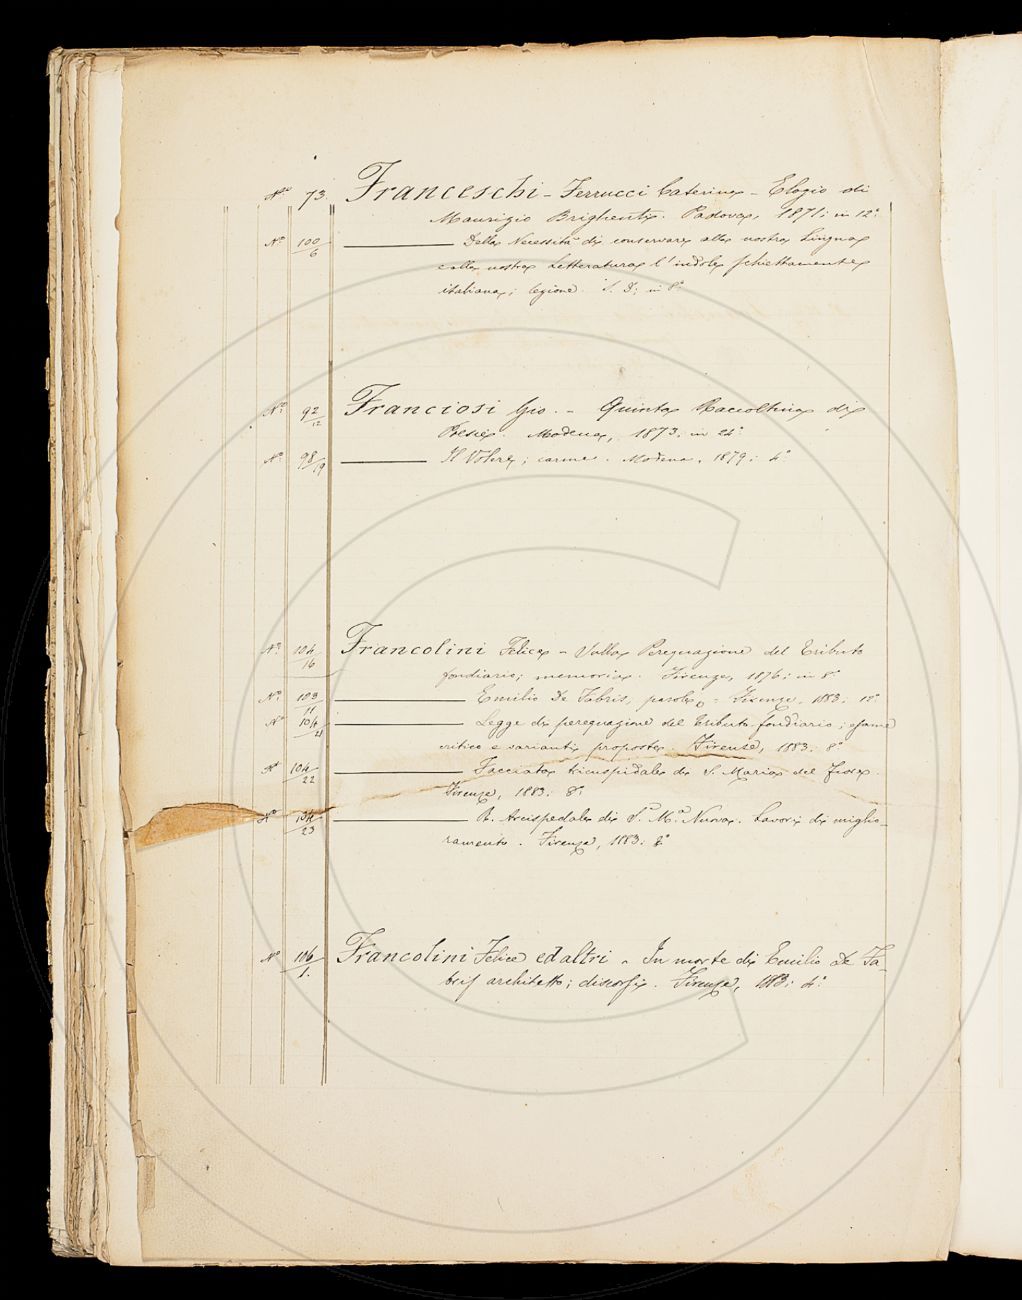 N.º 73 Franceschi-Ferrucci Caterina - Elogio di
Maurizio Brighenti. Padova, 1871; in 12º
N.º 100/6 ——— Della Necessità di conservare alla nostra Lingua
e alla nostra Letteratura l'indole schiettamente
italiana; lezione. S. D; in 8º
N.º 92/12 Franciosi Gio. - Quinta Raccoltina di
Poesie. Modena, 1873; in 24º
N.º 98/19 ——— Il Volere; carme. Modena, 1879; 4º
N.º 104/16 Francolini Felice - Sulla Perequazione del Tributo
fondiario; memoria. Firenze, 1876; in 8º
N.º 103/11 ——— Emilio De Fabris, parole. Firenze, 1883; 12º
N.º 104/21 ——— Legge di perequazione del Tributo fondiario; esame
critico e varianti proposte. Firenze, 1883; 8º
N.º 104/22 ——— Facciata tricuspidale di S. Maria del Fiore.
Firenze, 1883; 8º
N.º 104/23 ——— R. Arcispedale di S.ª M.ª Nuova. Lavori di miglio-
ramento. Firenze, 1883; 8º
N.º 106/1. Francolini Felice ed altri - In morte di Emilio De Fa-
bris architetto; discorsi. Firenze, 1883; 4º